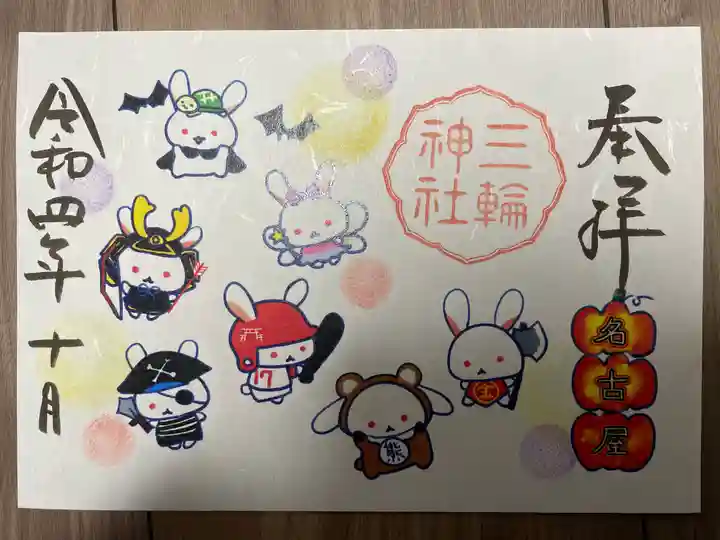 奉拝
名古屋
三輪
神社
7
金
熊
令和四年十月